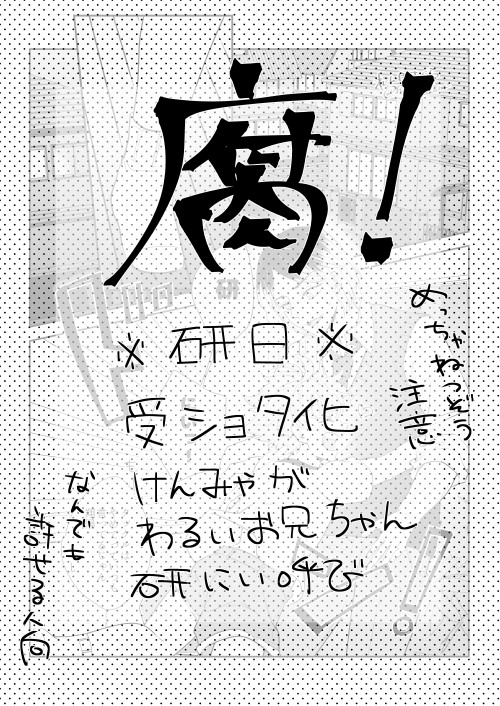 腐!
※研日※
受ショタ化
けんみゃが
わるいお兄ちゃん
研にい呼び
めっちゃねつぞう
注意
なんでも
許せる人向